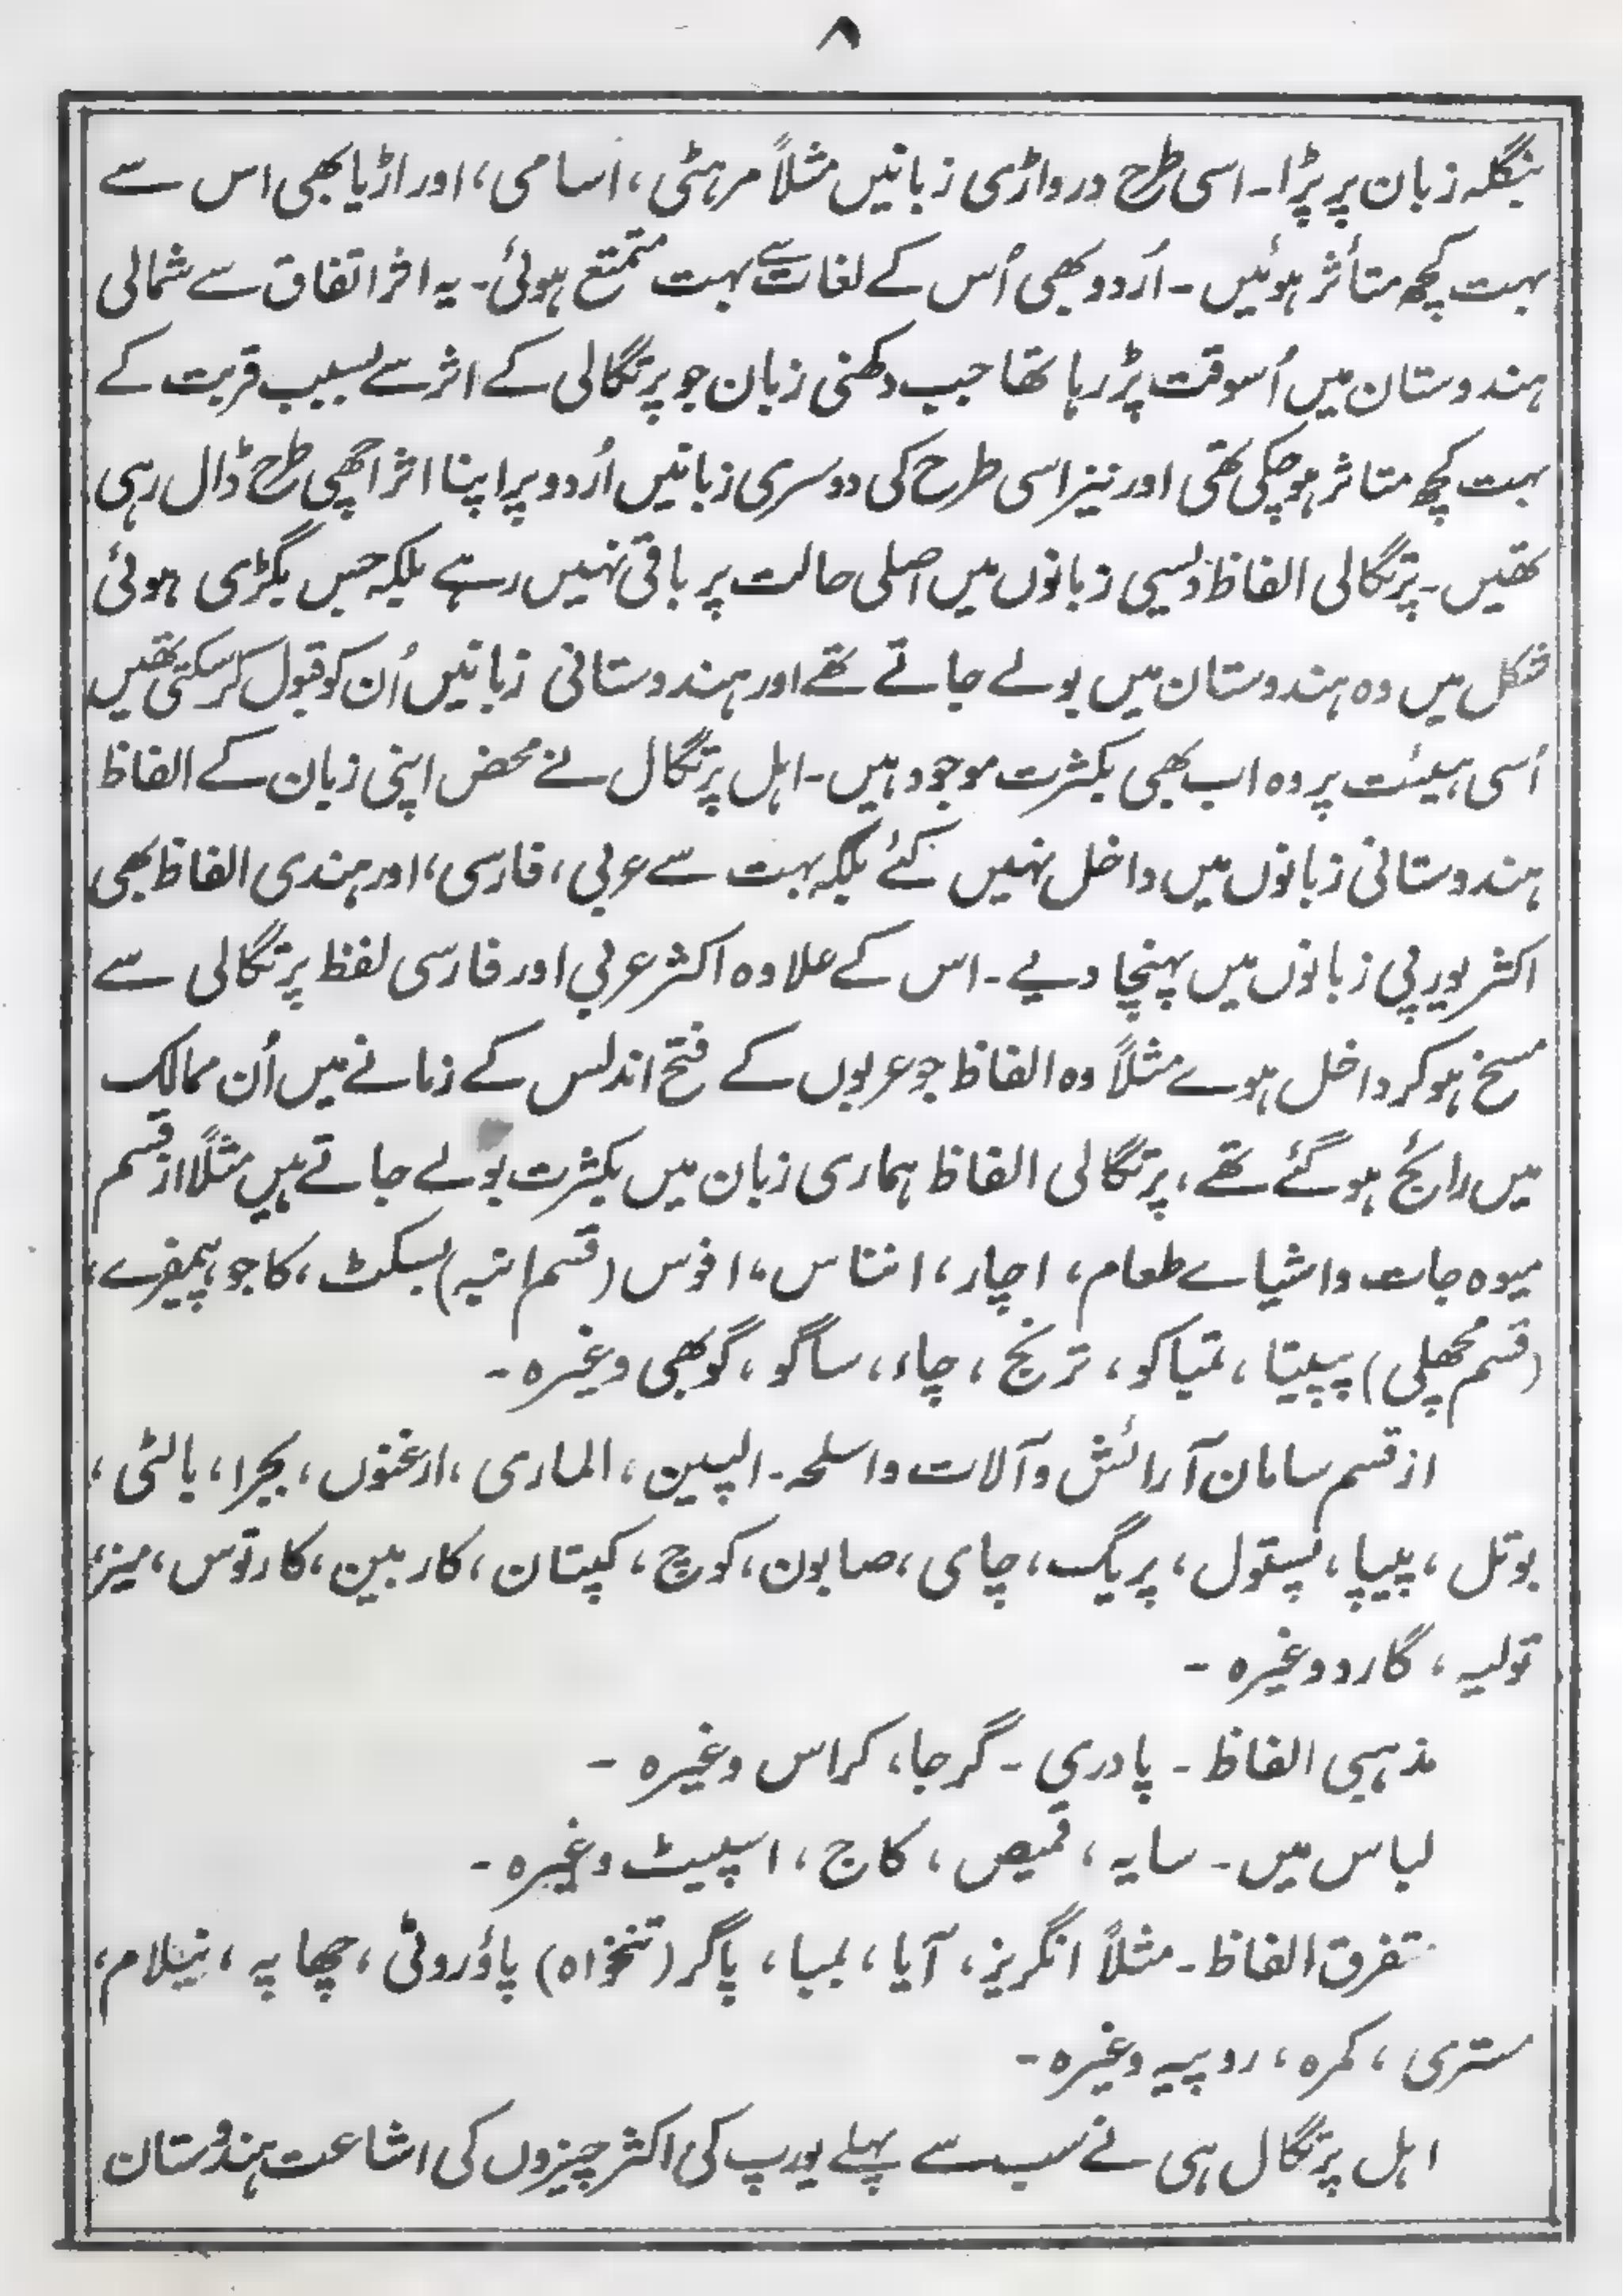 ۸
بنگلہ زبان پر پڑا۔ اسی طرح درواڑی زبانیں مثلاً مرہٹی، آسامی، اور اڑیا بھی اس سے
بہت کچھ متأثر ہوئیں۔ اُردو بھی اُس کے لغات سے بہت متمتع ہوئی۔ یہ اثر اتفاق سے شمالی
ہندوستان میں اُسوقت پڑ رہا تھا جب دکھنی زبان جو پرتگالی کے اثر سے بسبب قربت کے
بہت کچھ متاثر ہو چکی تھی اور نیز اسی طرح کی دوسری زبانیں اُردو پر اپنا اثر اچھی طرح ڈال رہی
تھیں۔ پرتگالی الفاظ دلیسی زبانوں میں اصلی حالت پر باقی نہیں رہے بلکہ جس بگڑی ہوئی
شکل میں وہ ہندوستان میں بولے جاتے تھے اور ہندوستانی زبانیں اُن کو قبول کر سکتی تھیں
اُسی ہیئت پر وہ اب بھی بکثرت موجود ہیں۔ اہل پرتگال نے محض اپنی زبان کے الفاظ
ہندوستانی زبانوں میں داخل نہیں کئے بلکہ بہت سے عربی، فارسی، اور ہندی الفاظ بھی
اکثر یورپی زبانوں میں پہنچا دیے۔ اس کے علاوہ اکثر عربی اور فارسی لفظ پرتگالی سے
مسخ ہو کر داخل ہوے مثلاً وہ الفاظ جو عربوں کے فتح اندلس کے زمانے میں اُن ممالک
میں رائج ہو گئے تھے، پرتگالی الفاظ ہماری زبان میں بکثرت بولے جاتے ہیں مثلاً از قسم
میوہ جات و اشیاے طعام، اچار، انناس، افوس (قسم انبہ) بسکٹ، کاجو، پمفرے،
(قسم مچھلی) پپیتا، تمباکو، ترنج، چاء، ساگو، گوبھی وغیرہ۔
از قسم سامان آرائش و آلات و اسلحہ۔ الپین، الماری، ارغنوں، بجرا، بالٹی،
بوتل، پیپا، پستول، پریگ، چابی، صابون، کوچ، کپتان، کاربین، کارتوس، میز،
تولیہ، گارد وغیرہ۔
مذہبی الفاظ۔ پادری۔ گرجا، کراس وغیرہ۔
لباس میں۔ سایہ، قمیص، کاج، اسپیٹ وغیرہ۔
متفرق الفاظ۔ مثلاً انگریز، آیا، بمبا، پاگر (تنخواہ) پاؤروٹی، چھاپہ، نیلام،
مستری، کمرہ، روپیہ وغیرہ۔
اہل پرتگال ہی نے سب سے پہلے یورپ کی اکثر چیزوں کی اشاعت ہندوستان